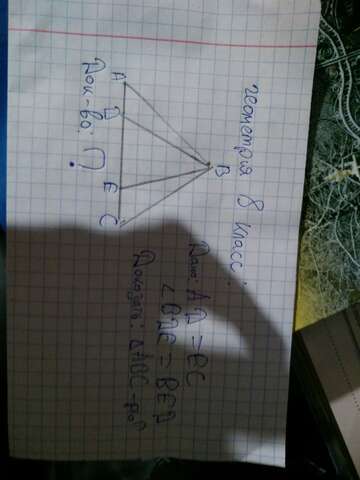 геометрия 8 класс.
B
A D E C
Док-во: ?
Дано: AD = EC
∠BDE = BED
Доказать: ΔABC - р/б